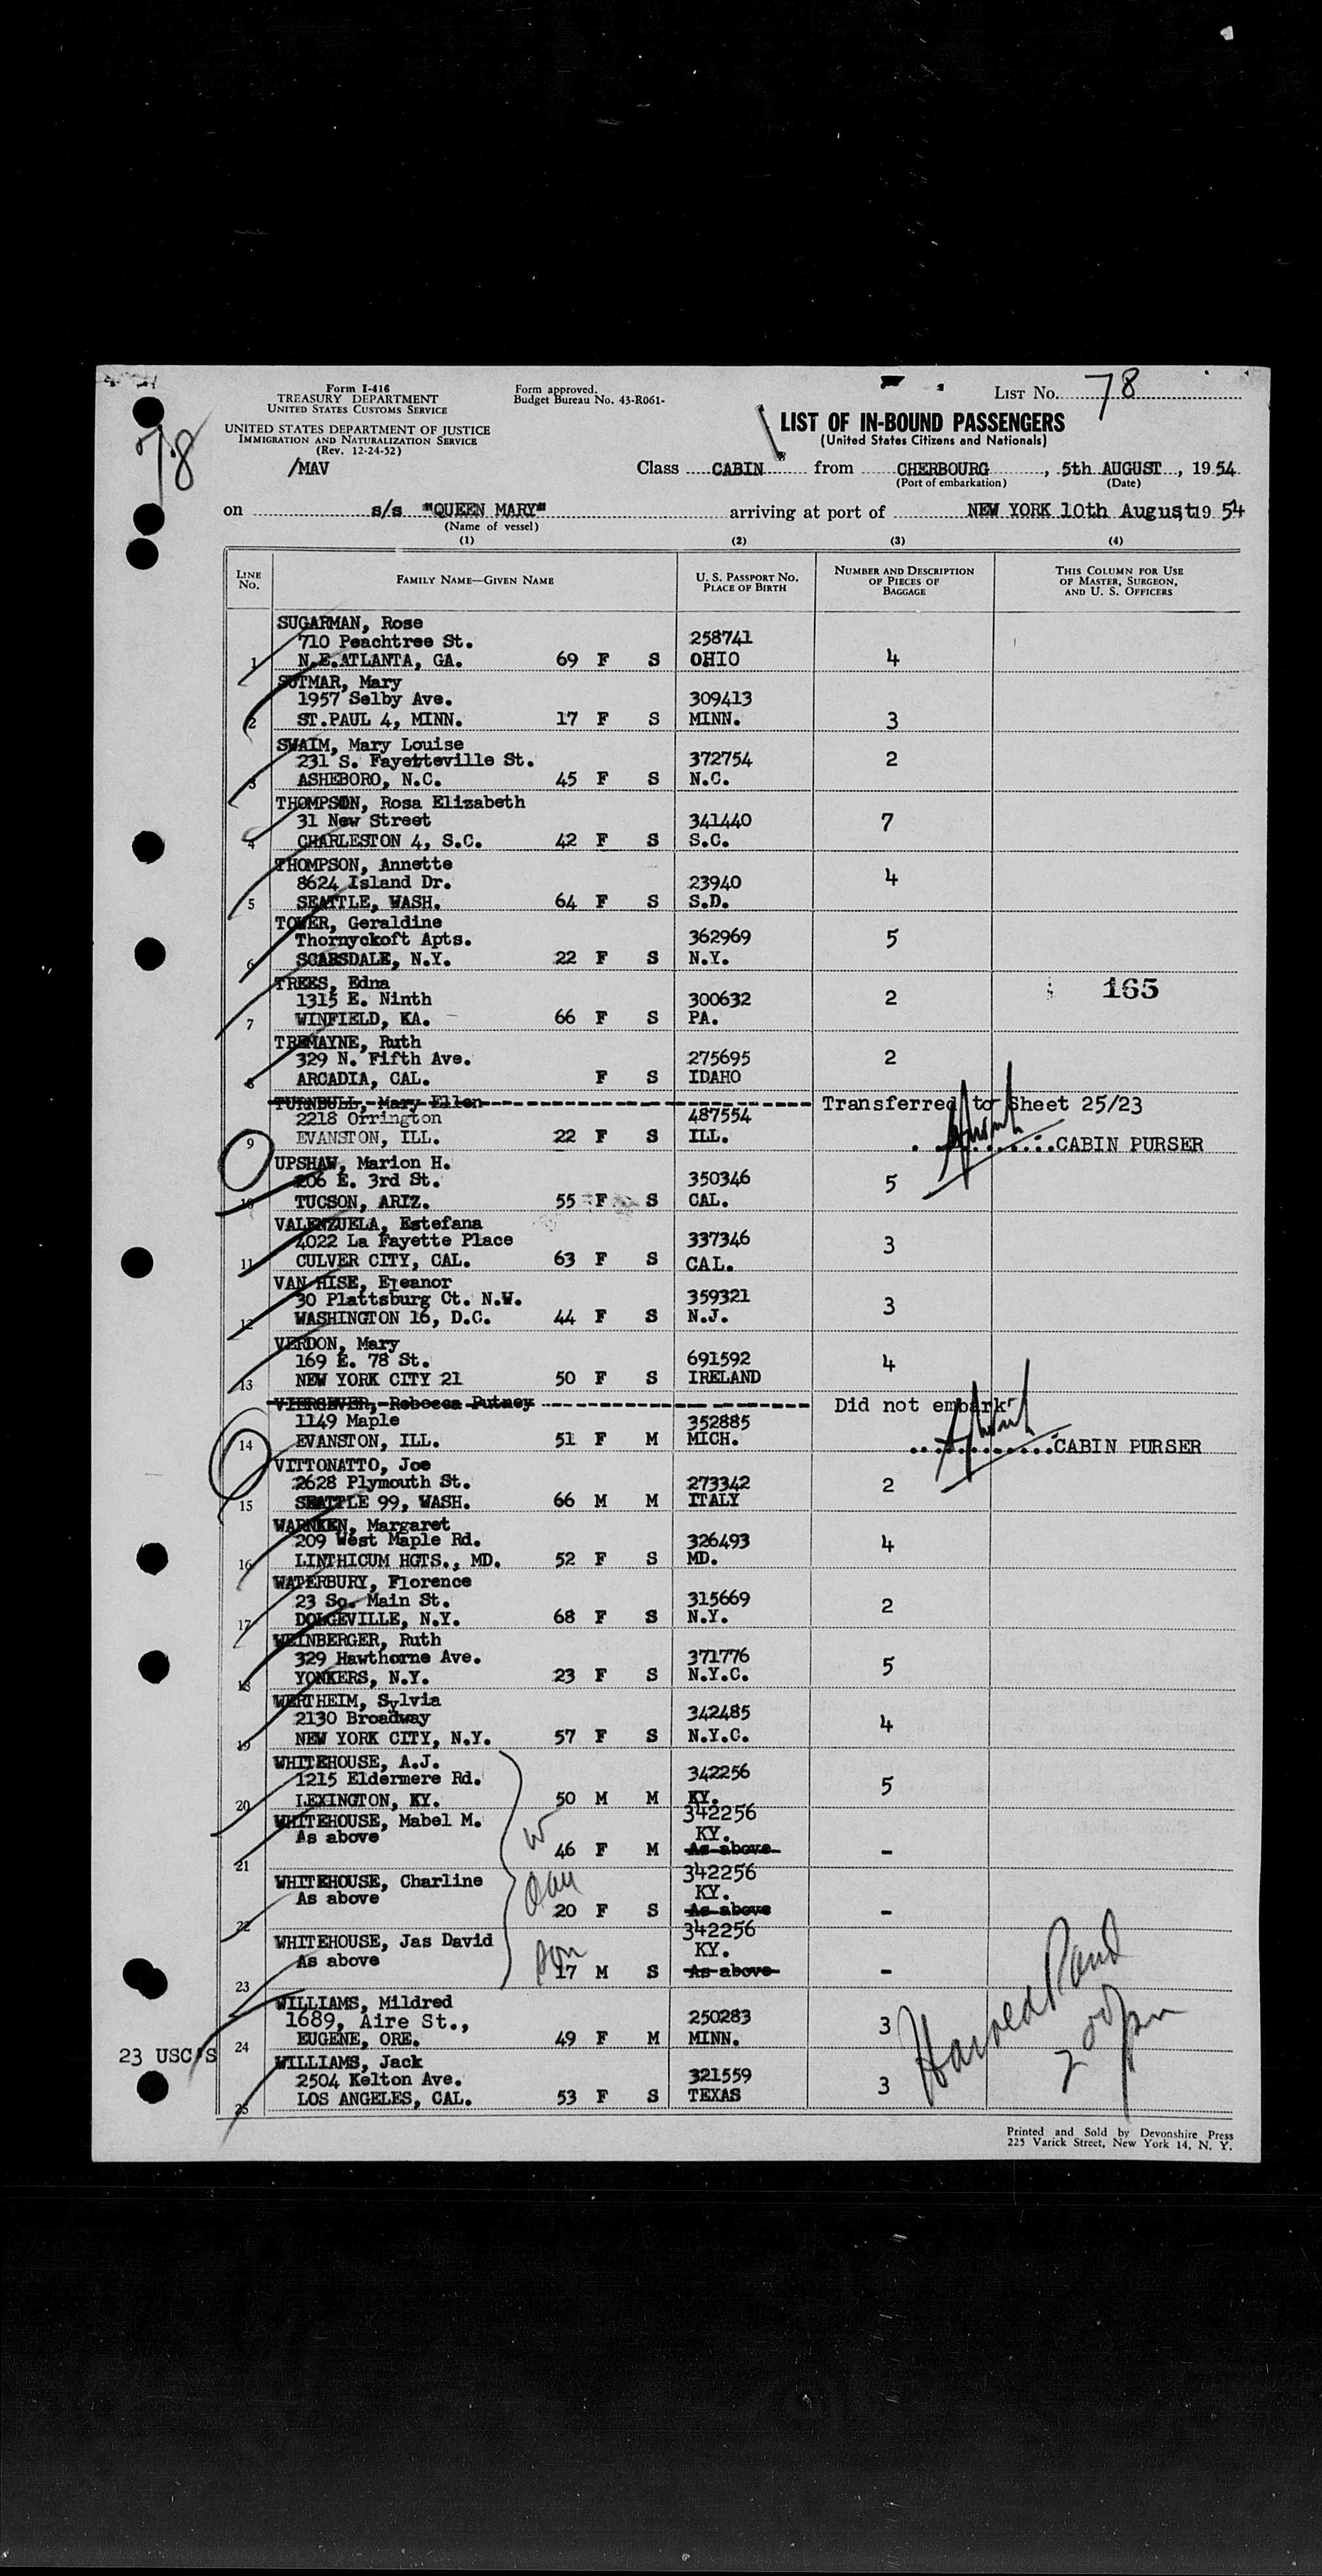 Form I-416
TREASURY DEPARTMENT
UNITED STATES CUSTOMS SERVICE
UNITED STATES DEPARTMENT OF JUSTICE
IMMIGRATION AND NATURALIZATION SERVICE
(Rev. 12-24-52)
/MAV
Form approved.
Budget Bureau No. 43-R061-
LIST NO. 78
78
LIST OF IN-BOUND PASSENGERS
(United States Citizens and Nationals)
Class CABIN from CHERBOURG, 5th AUGUST, 1954
(Port of embarkation) (Date)
on s/s "QUEEN MARY" arriving at port of NEW YORK 10th August, 1954
(Name of vessel)
(1) (2) (3) (4)
LINE NO. FAMILY NAME—GIVEN NAME U. S. PASSPORT NO. PLACE OF BIRTH NUMBER AND DESCRIPTION OF PIECES OF BAGGAGE THIS COLUMN FOR USE OF MASTER, SURGEON, AND U. S. OFFICERS
SUGARMAN, Rose
710 Peachtree St. 258741
1 N.E.ATLANTA, GA. 69 F S OHIO 4
SUTMAR, Mary
1957 Selby Ave. 309413
2 ST.PAUL 4, MINN. 17 F S MINN. 3
SWAIM, Mary Louise
231 S. Fayetteville St. 372754 2
3 ASHEBORO, N.C. 45 F S N.C.
THOMPSON, Rosa Elizabeth
31 New Street 341440 7
4 CHARLESTON 4, S.C. 42 F S S.C.
THOMPSON, Annette
8624 Island Dr. 23940 4
5 SEATTLE, WASH. 64 F S S.D.
TOWER, Geraldine
Thornyckoft Apts. 362969 5
6 SCARSDALE, N.Y. 22 F S N.Y.
TREES, Edna
1315 E. Ninth 300632 2 165
7 WINFIELD, KA. 66 F S PA.
TREMAYNE, Ruth
329 N. Fifth Ave. 275695 2
8 ARCADIA, CAL. F S IDAHO
TURNBULL, Mary Ellen Transferred to Sheet 25/23
2218 Orrington 487554
9 EVANSTON, ILL. 22 F S ILL. CABIN PURSER
UPSHAW, Marion H.
206 E. 3rd St. 350346 5
10 TUCSON, ARIZ. 55 F S CAL.
VALENZUELA, Estefana
4022 La Fayette Place 337346 3
11 CULVER CITY, CAL. 63 F S CAL.
VAN HISE, Eleanor
30 Plattsburg Ct. N.W. 359321 3
12 WASHINGTON 16, D.C. 44 F S N.J.
VERDON, Mary
169 E. 78 St. 691592 4
13 NEW YORK CITY 21 50 F S IRELAND
VIERGEVER, Rebecca Putney Did not embark
1149 Maple 352885
14 EVANSTON, ILL. 51 F M MICH. CABIN PURSER
VITTONATTO, Joe
2628 Plymouth St. 273342 2
15 SEATTLE 99, WASH. 66 M M ITALY
WARNKEN, Margaret
209 West Maple Rd. 326493 4
16 LINTHICUM HGTS., MD. 52 F S MD.
WATERBURY, Florence
23 So. Main St. 315669 2
17 DOLGEVILLE, N.Y. 68 F S N.Y.
WEINBERGER, Ruth
329 Hawthorne Ave. 371776 5
18 YONKERS, N.Y. 23 F S N.Y.C.
WERTHEIM, Sylvia
2130 Broadway 342485 4
19 NEW YORK CITY, N.Y. 57 F S N.Y.C.
WHITEHOUSE, A.J.
1215 Eldermere Rd. 342256 5
20 LEXINGTON, KY. 50 M M KY.
WHITEHOUSE, Mabel M. 342256
As above W KY.
21 46 F M As above -
WHITEHOUSE, Charline 342256
As above dau KY.
22 20 F S As above -
WHITEHOUSE, Jas David 342256
As above son KY.
23 17 M S As above -
WILLIAMS, Mildred
1689, Aire St., 250283 3
24 EUGENE, ORE. 49 F M MINN.
23 USC/S
WILLIAMS, Jack
2504 Kelton Ave. 321559 3
25 LOS ANGELES, CAL. 53 F S TEXAS
Harold Rand
2 00 pm
Printed and Sold by Devonshire Press
225 Varick Street, New York 14, N. Y.